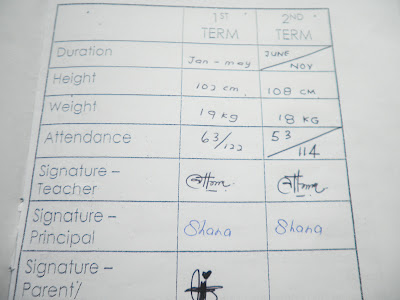 1ST 2ND
TERM TERM
Duration Jan - may JUNE / NOV
Height 102 cm. 108 CM
Weight 19 kg 18 KG
Attendance 63/122 53/114
Signature –
Teacher
Signature – Shana Shana
Principal
Signature –
Parent/